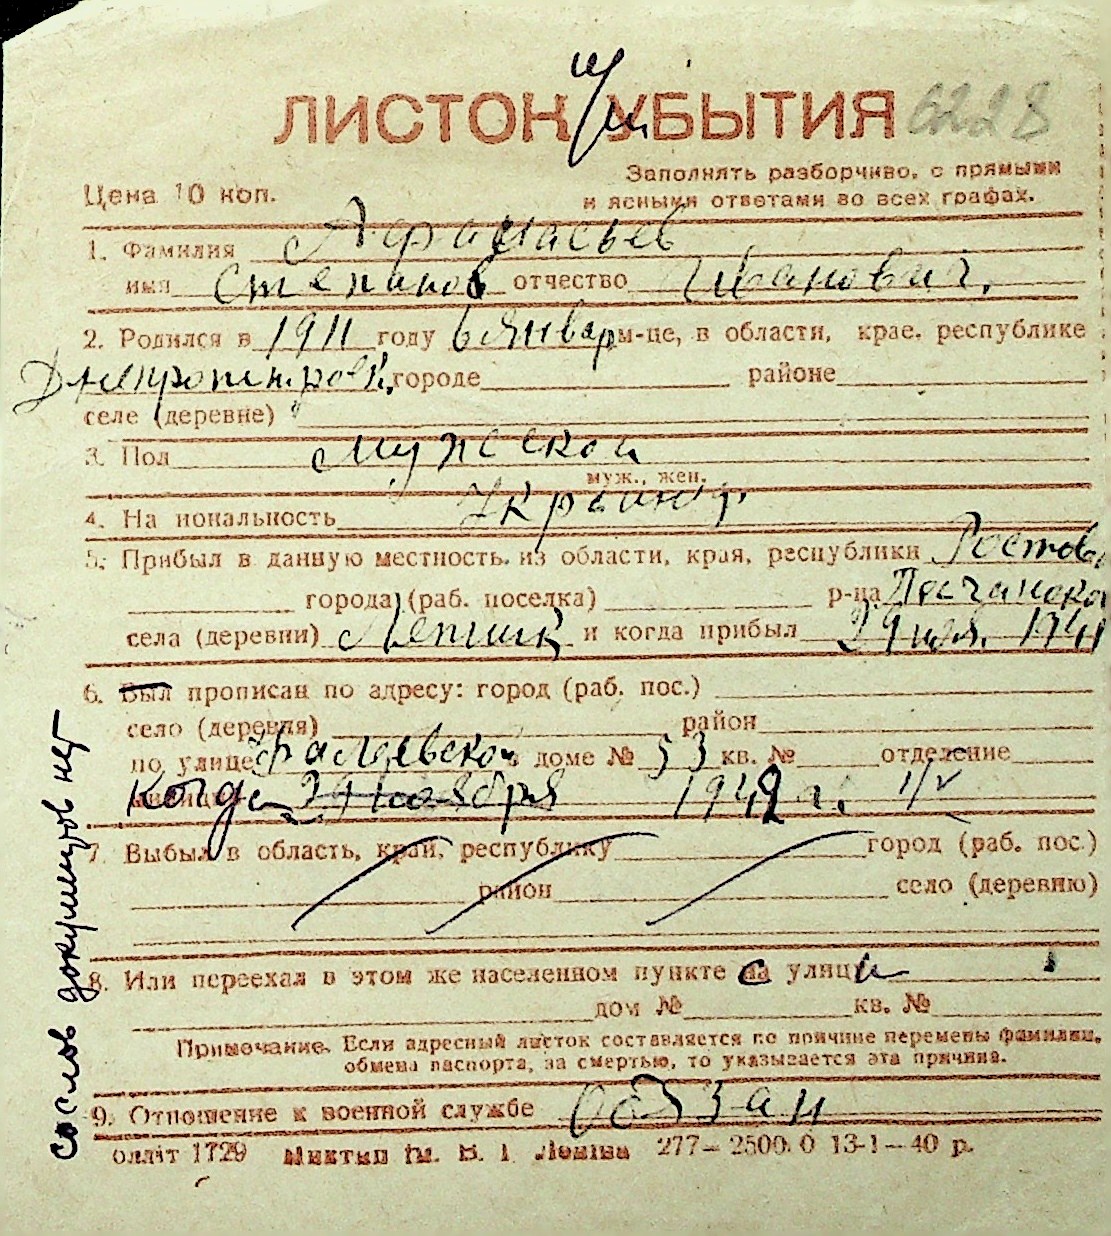 ЛИСТОК УБЫТИЯ 6228
Заполнять разборчиво, с прямыми
Цена 10 коп. и ясными ответами во всех графах.
1. Фамилия Афанасьев
имя Степанов отчество Иванович.
2. Родился в 1911 году 6 январ м-це, в области, крае, республике
Днепропетровск. городе районе
селе (деревне) "
3. Пол мужской
муж., жен.
4. На иональность Украинц.
5. Прибыл в данную местность из области, края, республики Ростов
города (раб. поселка) р-на Песчанско
села (деревни) и когда прибыл 1941
6. Был прописан по адресу: город (раб. пос.)
село (деревня) район
по улице Фалеевской в доме № 53 кв. № отделение
когда 29 ноября 1942 г.
7. Выбыл в область, край, республику город (раб. пос.)
район село (деревню)
8. Или переехал в этом же населенном пункте с улицы
дом № кв. №
Примечание. Если адресный листок составляется по причине перемены фамилии,
обмена паспорта, за смертью, то указывается эта причина.
9. Отношение к военной службе Обязан
олліт 1729 Миктип ім. В. І. Леніна 277—2500.0 13-1—40 р.
со слов документов нет